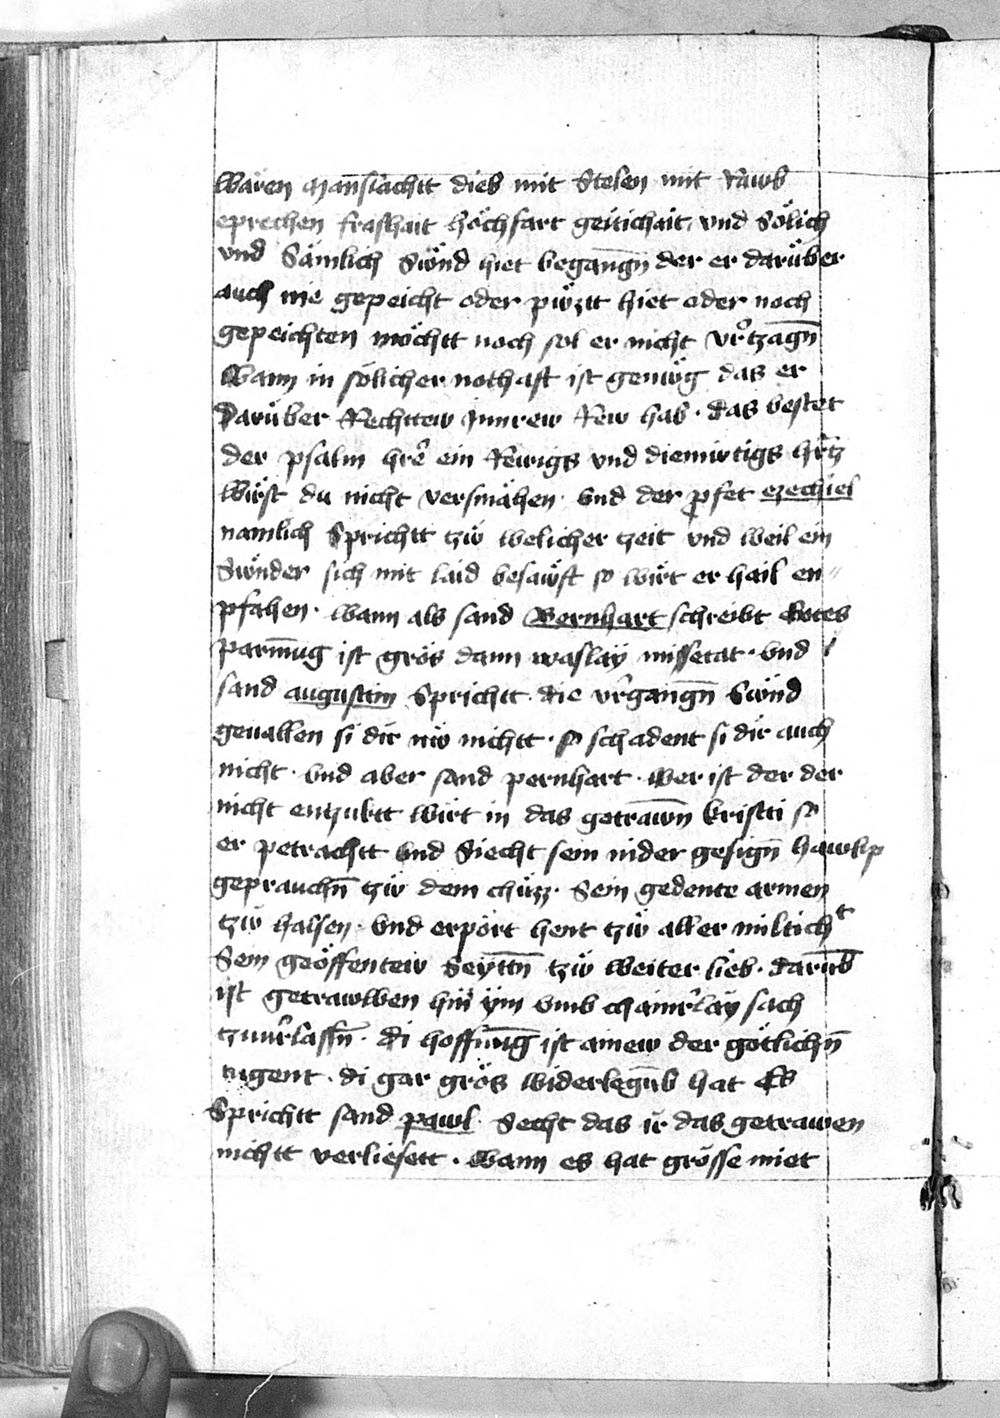 Waren Manslachtt dieb mit Stelen mit Rawb
eprechen frashait höchfart geitichait vnd Sölich
vnd Sämlich Swnd hiet begangn̄ der er darüber
auch nie gepeicht oder pwztt hiet oder noch
gepeichten möchtt noch sol er nicht vr̂tzagn̄
Wann in sölicher nothaft ist genwg das er
Darüber Rechttew Jnnrew Rew hab · das bestet
der psalm hr̂e ein Rewigs vnd diemwtigs hr̂tz
Wirst du nicht versmähen · Vnd der pfet ezechiel
namlich Sprichtt zw welicher zeit vnd weil ein
Swnder sich mit laid besawft so wirt er hail en〃
pfahen · wann als sand Bernhart schreibt Gotes
parm̄ug ist grös dann waslay missetat · Vnd
sand augustin Sprichtt · die vr̂gangn̄ Swnd
geuallen si dir nw nichtt · so schadent si dir auch
nicht · Vnd aber sand pernhart · Wer ist der der
nicht entzuktt wirt in das getrawn̄ kristi so
er petrachtt Vnd Siecht sein nider gesign̄ hawbp
geprauchn̄ tzw dem chüzz · Sein gedente armen
tzw halsen · Vnd erpört hent tzw aller miltichᵗ
Sein geöffentew Seyttn̄ tzw weiter lieb · darūb
ist getrawlben hin ym vmb chainr̂lay sach
tzuur̂lassn̄ · di hoffnūg ist ainew der götlichn̄
tugent · di gar grös widerlegūb hat Es
Sprichtt sand pawl · Secht das ir das getrawen
nichtt verliesett · Wann es hat grösse miet